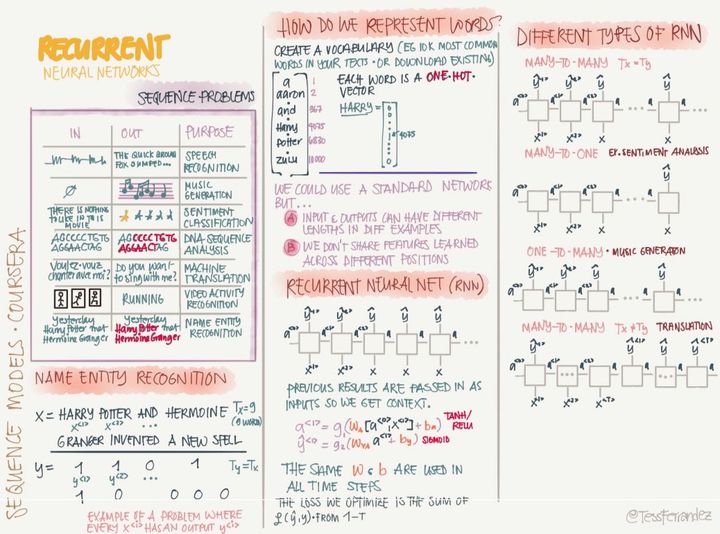 RECURRENT
NEURAL NETWORKS
SEQUENCE PROBLEMS
IN OUT PURPOSE
THE QUICK BROWN
FOX JUMPED... SPEECH
RECOGNITION
∅ MUSIC
GENERATION
THERE IS NOTHING
TO LIKE IN THIS
MOVIE SENTIMENT
CLASSIFICATION
AGCCCCTGTG
AGGAACTAG AGCCCCTGTG
AGGAACTAG DNA-SEQUENCE
ANALYSIS
Voulez-vous
chanter avec moi? Do you want
to sing with me? MACHINE
TRANSLATION
RUNNING VIDEO ACTIVITY
RECOGNITION
Yesterday
Harry Potter met
Hermoine Granger Yesterday
Harry Potter met
Hermoine Granger NAME ENTITY
RECOGNITION
SEQUENCE MODELS · COURSERA
NAME ENTITY RECOGNITION
X = HARRY POTTER AND HERMOINE Tx=9
x<1> x<2> ... (9 WORDS)
GRANGER INVENTED A NEW SPELL
y = 1 1 0 1 Ty=Tx
y<1> y<2> ...
1 0 0 0 0
EXAMPLE OF A PROBLEM WHERE
EVERY x<i> HAS AN OUTPUT y<i>
HOW DO WE REPRESENT WORDS?
CREATE A VOCABULARY (EG 10K MOST COMMON
WORDS IN YOUR TEXTS · OR DOWNLOAD EXISTING)
a 1
aaron 2
and 367
Harry 4075
Potter 6830
zulu 10000
EACH WORD IS A ONE·HOT·
VECTOR
HARRY =
4075
WE COULD USE A STANDARD NETWORK
BUT...
A INPUT & OUTPUTS CAN HAVE DIFFERENT
LENGTHS IN DIFF EXAMPLES
B WE DON'T SHARE FEATURES LEARNED
ACROSS DIFFERENT POSITIONS
RECURRENT NEURAL NET (RNN)
ŷ<1> ŷ<2> ŷ ŷ ŷ
a<0> a<1> a a a a
x<1> x<2> x x x
PREVIOUS RESULTS ARE PASSED IN AS
INPUTS SO WE GET CONTEXT.
a<1> = g₁(Wa[a<0>, x<1>] + ba) TANH/
RELU
ŷ<1> = g₂(Wya a<1> + by) SIGMOID
THE SAME W & b ARE USED IN
ALL TIME STEPS
THE LOSS WE OPTIMIZE IS THE SUM OF
ℒ(ŷ,y) · FROM 1-T
DIFFERENT TYPES OF RNN
MANY-TO-MANY Tx = Ty
MANY-TO-ONE EX. SENTIMENT ANALYSIS
ONE-TO-MANY · MUSIC GENERATION
MANY-TO-MANY Tx ≠ Ty TRANSLATION
@TessFerrandez